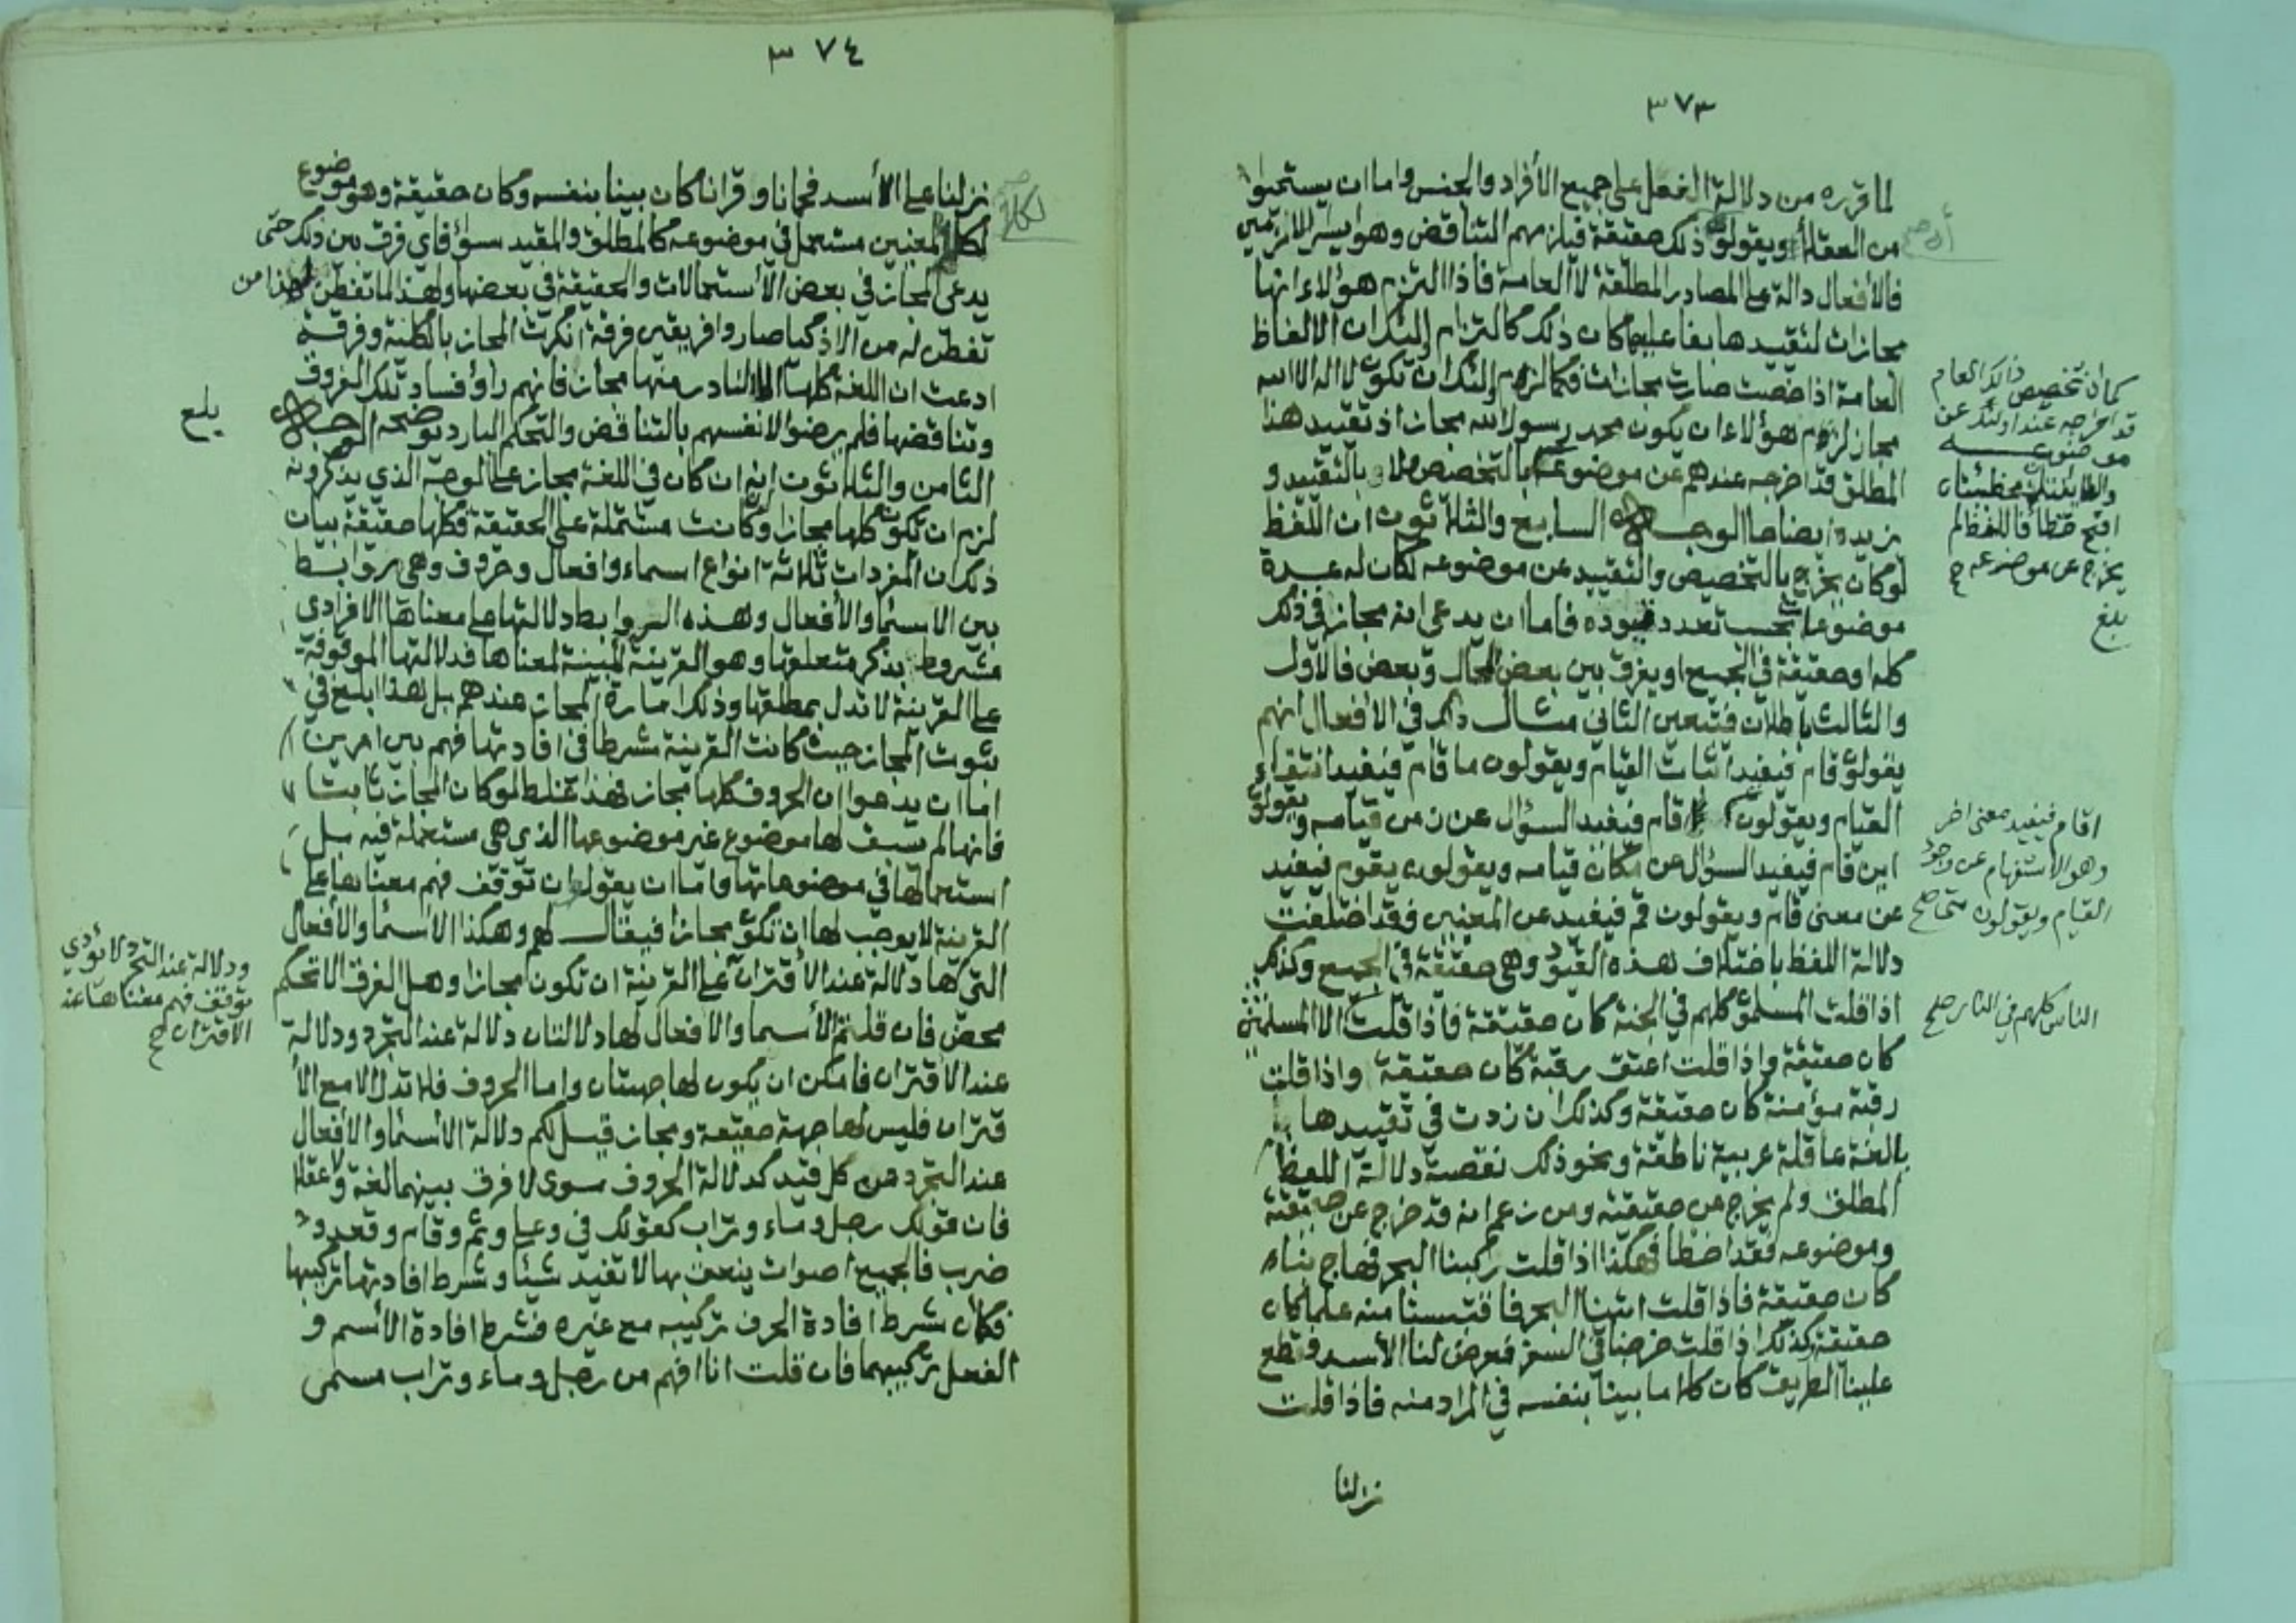 ٣٧٣
لما قرره من دلالة الفعل على جميع الأفراد والجنس واما ان يستحيوا
من العقلاء ويقولون ذلك حقيقة فيلزمهم التناقض وهو ايسر الالزامين
فالأفعال دالة على المصادر المطلقة لا العامة فاذا التزم هؤلاء انها
مجازات لتقييدها بفاعليها كان ذلك كالتزام اولئك ان الالفاظ
العامة اذا خصت صارت مجازات فكما لزم اولئك ان تكون لا اله الا الله
مجاز لزم هؤلاء ان يكون محمد رسول الله مجاز اذ تقييد هذا
المطلق قد اخرجه عندهم عن موضوعه بالتخصيص بالتقييد و
نزيده ايضاحا الوجه السابع والثلاثون ان اللفظ
لو كان يخرج بالتخصيص والتقييد عن موضوعه لكان له عدة
موضوعات بحسب تعدد قيوده فاما ان يدعى انه مجاز في ذلك
كله او حقيقة في الجميع او يفرق بين بعض المحال وبعض فالأول
والثالث باطلان فتعين الثاني مثال ذلك في الافعال انهم
يقولون قام فيفيد اثبات القيام ويقولون ما قام فيفيد انتفاء
القيام ويقولون قام فيفيد السؤال عن زمن قيامه ويقولون
اين قام فيفيد السؤال عن مكان قيامه ويقولون يقوم فيفيد
عن معنى قام ويقولون قم فيفيد عن المعنيين فقد اختلفت
دلالة اللفظ باختلاف هذه القيود وهي حقيقة في الجميع وكذلك
اذا قلت المسلمون كلهم في الجنة كان حقيقة فاذا قلت الا المسلمين
كان حقيقة واذا قلت اعتق رقبة كان حقيقة واذا قلت
رقبة مؤمنة كان حقيقة وكذلك ان زدت في تقييدها
بالغة عاقلة عربية ناطقة ونحو ذلك نقصت دلالة اللفظ
المطلق ولم يخرج عن حقيقته ومن زعم انه قد خرج عن حقيقته
وموضوعه فقد اخطأ فهكذا اذا قلت ركبنا البحر فهاج بناء
كان حقيقة فاذا قلت اتينا البحر فاقتبسنا منه علما كان
حقيقة كذلك اذا قلت خرجنا في السفر فعرض لنا الأسد فقطع
علينا الطريق كان كلاما بينا بنفسه في المراد منه فاذا قلت
نزلنا
كما ان تخصيص ذلك العام
قد اخرجه عند اولئك عن
موضوعه
والطائفتان مخطئتان
اقبح خطأ فاللفظ لم
يخرج عن موضوعه
بلغ
اقام فيفيد معنى اخر
وهو الاستفهام عن وجود
القيام ويقولون متى صح
الناس كلهم في النار صح
٣٧٤
نزلنا على الأسد فحمانا وقرانا كان بينا بنفسه وكان حقيقة وهو موضوع
لكلا المعنيين مستعمل في موضوعه كالمطلق والمقيد سواء فاي فرق بين ذلك حتى
يدعى المجاز في بعض الأستعمالات والحقيقة في بعضها ولهذا لما تفطن لهذا من
تفطن له من الاذكيا صاروا فريقين فرقة انكرت المجاز بالكلية وفرقة
ادعت ان اللغة كلها الا النادر منها مجاز فانهم رأوا فساد تلك الفروق
وتناقضها فلم يرضوا لانفسهم بالتناقض والتحكم البارد يوضحه الوجه
الثامن والثلاثون انه ان كان في اللغة مجاز على الوجه الذي يذكرونه
لزم ان تكون كلها مجازا وان كانت مشتملة على الحقيقة فكلها حقيقة بيان
ذلك ان المفردات ثلاثة انواع اسماء وافعال وحروف وهي روابط
بين الاسما والأفعال وهذه الروابط دلالتها على معناها الافرادى
مشروط بذكر متعلقها وهو القرينة المبينة لمعناها فدلالتها الموقوفة
على القرينة لا تدل بمطلقها وذلك امارة المجاز عندهم بل هذا ابلغ في
ثبوت المجاز حيث كانت القرينة شرطا في افادتها فهم بين امرين
اما ان يدعوا ان الحروف كلها مجاز فهذا غلط لو كان المجاز ثابتا
فانها لم يسبق لها موضوع غير موضوعها الذي هي مستعملة فيه بل
استعمالها في موضوعاتها واما ان يقولوا ان توقف فهم معناها على
القرينة لا يوجب لها ان تكون مجازا فيقال لهم وهكذا الأسما والأفعال
التي لها دلالة عند الأقتران على القرينة ان تكون مجازا وهل الفرق الا تحكم
محض فان قلتم الأسما والافعال لها دلالتان دلالة عند التجرد ودلالة
عند الاقتران فامكن ان يكون لها جهتان واما الحروف فلا تدل الا مع الأ
قتران فليس لها جهة حقيقة ومجاز قيل لكم دلالة الأسما والأفعال
عند التجرد عن كل قيد كدلالة الحروف سوى لا فرق بينهما لغة ولا عقلا
فان قولك رجل وماء وتراب كقولك في وعلى وثم وقام وقعد و
ضرب فالجميع اصوات ينعق بها لا تفيد شيئا وشرط افادتها تركيبها
فكان شرط افادة الحرف تركيبه مع غيره فشرط افادة الأسم و
الفعل تركيبهما فان قلت انا افهم من رجل وماء وتراب مسمى
بلغ
ودلالة عند التجرد لا يؤدي
توقف فهم معناها عند
الاقتران صح